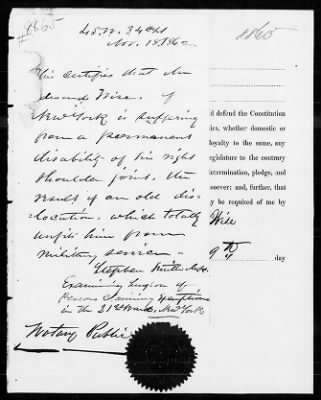 8865
8865
45 W. 34 St
Nov. 18. 1862
This certifies that
Wise, of
New York is suffering
from a permanent
disability of his right
shoulder joint, the
result of an old dis-
location, which totally
unfits him from
military service.
Stephen Smith M.D.
Examining Surgeon of
Persons claiming exemptions
in the 21st Ward, New York
Notary Public
d defend the Constitution
ies, whether domestic or
loyalty to the same, any
egislature to the contrary
determination, pledge, and
soever; and, further, that
y be required of me by
Wise
9th day